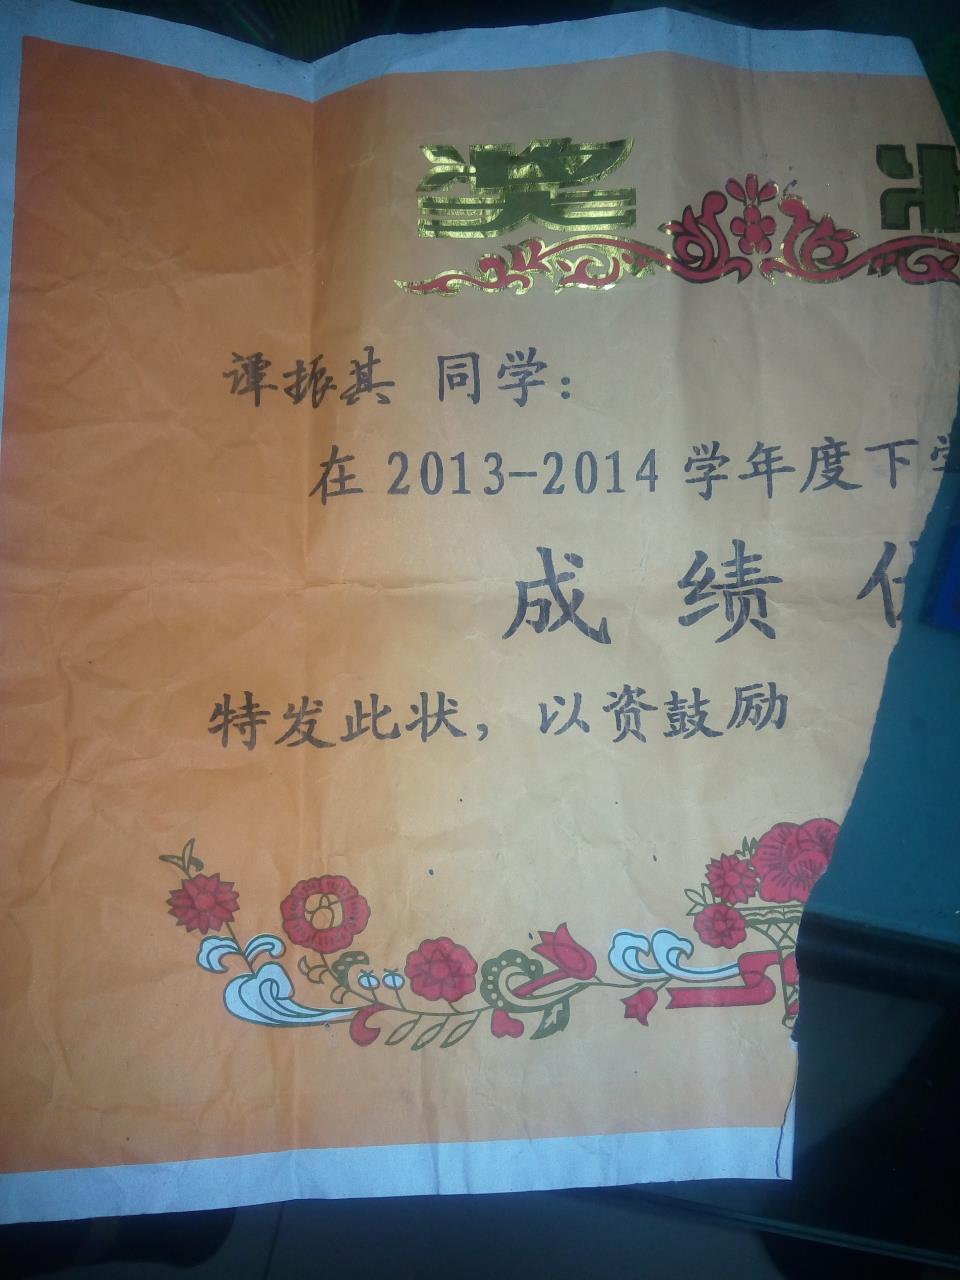 奖
谭振其 同学：
在2013-2014学年度下
成绩
特发此状，以资鼓励